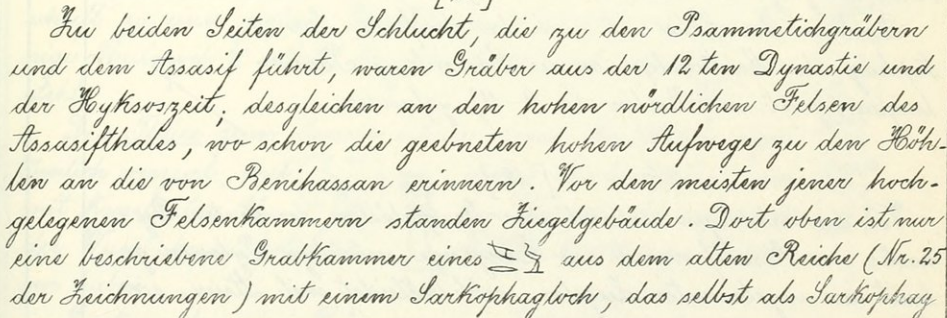 Zu beiden Seiten der Schlucht, die zu den Psammetichgräbern
und dem Assasif führt, waren Gräber aus der 12ten Dynastie und
der Hyksoszeit; desgleichen an den hohen nördlichen Felsen des
Assasifthales, wo schon die geebneten hohen Aufwege zu den Höh-
len an die von Benihassan erinnern. Vor den meisten jener hoch-
gelegenen Felsenkammern standen Ziegelgebäude. Dort oben ist nur
eine beschriebene Grabkammer eines aus dem alten Reiche (Nr. 25
der Zeichnungen) mit einem Sarkophagloch, das selbst als Sarkophag